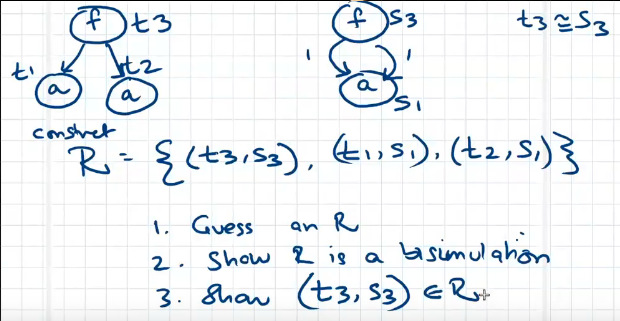 f t3 f S3 t3 ≅ S3
t1 t2 1 1
a a a
S1
construct
R = { (t3, S3), (t1, S1), (t2, S1) }
1. Guess an R
2. Show R is a bisimulation
3. Show (t3, S3) ∈ R